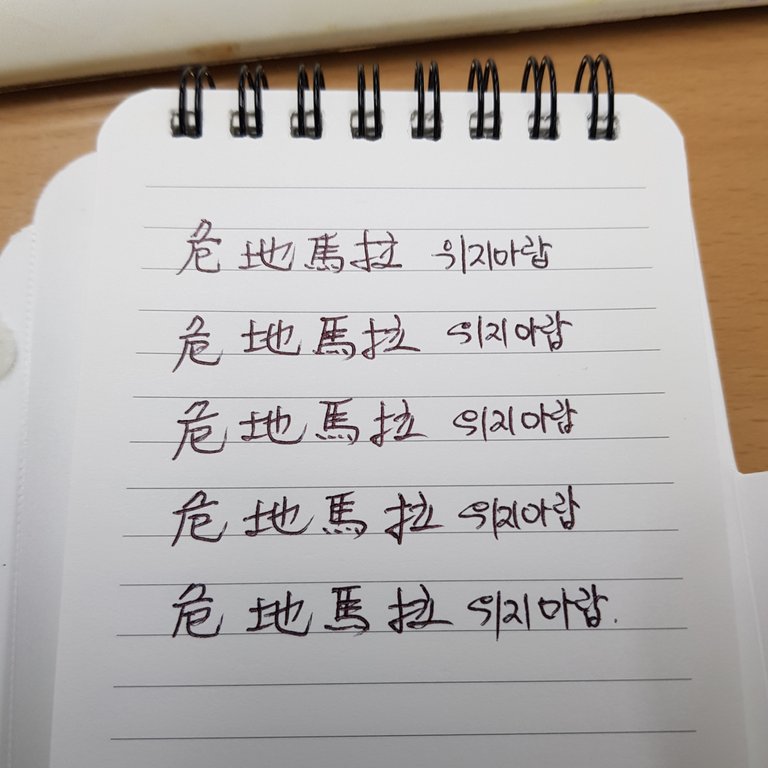 危地馬拉 위지마랍
危地馬拉 위지마랍
危地馬拉 위지마랍
危地馬拉 위지마랍
危地馬拉 위지마랍.